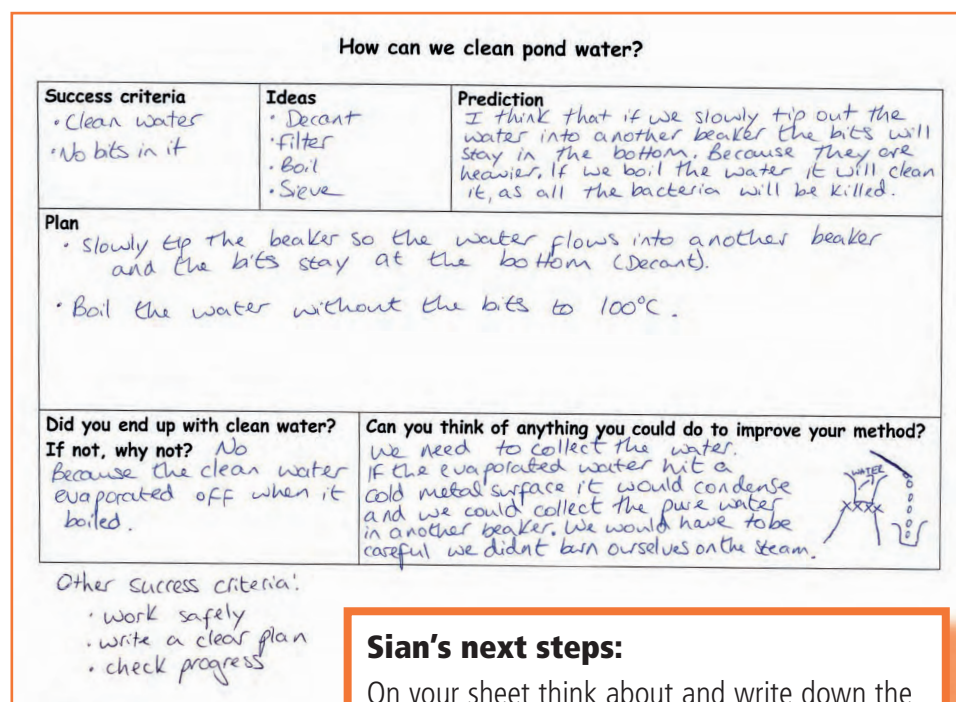 How can we clean pond water?
Success criteria
· Clean water
· No bits in it
Ideas
· Decant
· filter
· Boil
· Sieve
Prediction
I think that if we slowly tip out the
water into another beaker the bits will
stay in the bottom. Because they are
heavier. If we boil the water it will clean
it, as all the bacteria will be killed.
Plan
· Slowly tip the beaker so the water flows into another beaker
and the bits stay at the bottom (Decant).
· Boil the water without the bits to 100°C.
Did you end up with clean water?
If not, why not? No
Because the clean water
evaporated off when it
boiled.
Can you think of anything you could do to improve your method?
We need to collect the water.
If the evaporated water hit a
cold metal surface it would condense
and we could collect the pure water
in another beaker. We would have to be
careful we didnt burn ourselves on the steam.
WATER
Other success criteria:
· work safely
· write a clear plan
· check progress
Sian's next steps:
On your sheet think about and write down the